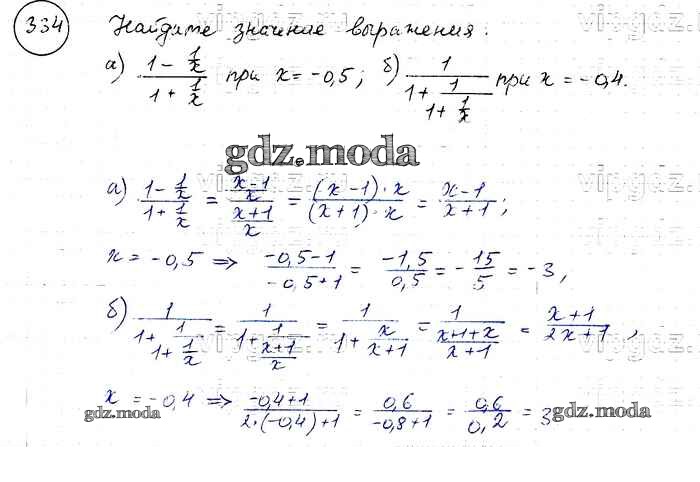 334 Найдите значение выражения:
а) (1 - 1/x)/(1 + 1/x) при x = -0,5; б) 1/(1 + 1/(1 + 1/x)) при x = -0,4.
gdz.moda
а) (1 - 1/x)/(1 + 1/x) = ((x-1)/x)/((x+1)/x) = ((x-1)·x)/((x+1)·x) = (x-1)/(x+1);
x = -0,5 ⇒ (-0,5-1)/(-0,5+1) = (-1,5)/(0,5) = -15/5 = -3,
б) 1/(1 + 1/(1 + 1/x)) = 1/(1 + 1/((x+1)/x)) = 1/(1 + x/(x+1)) = 1/((x+1+x)/(x+1)) = (x+1)/(2x+1),
x = -0,4 ⇒ (-0,4+1)/(2·(-0,4)+1) = 0,6/(-0,8+1) = 0,6/0,2 = 3
gdz.moda gdz.moda